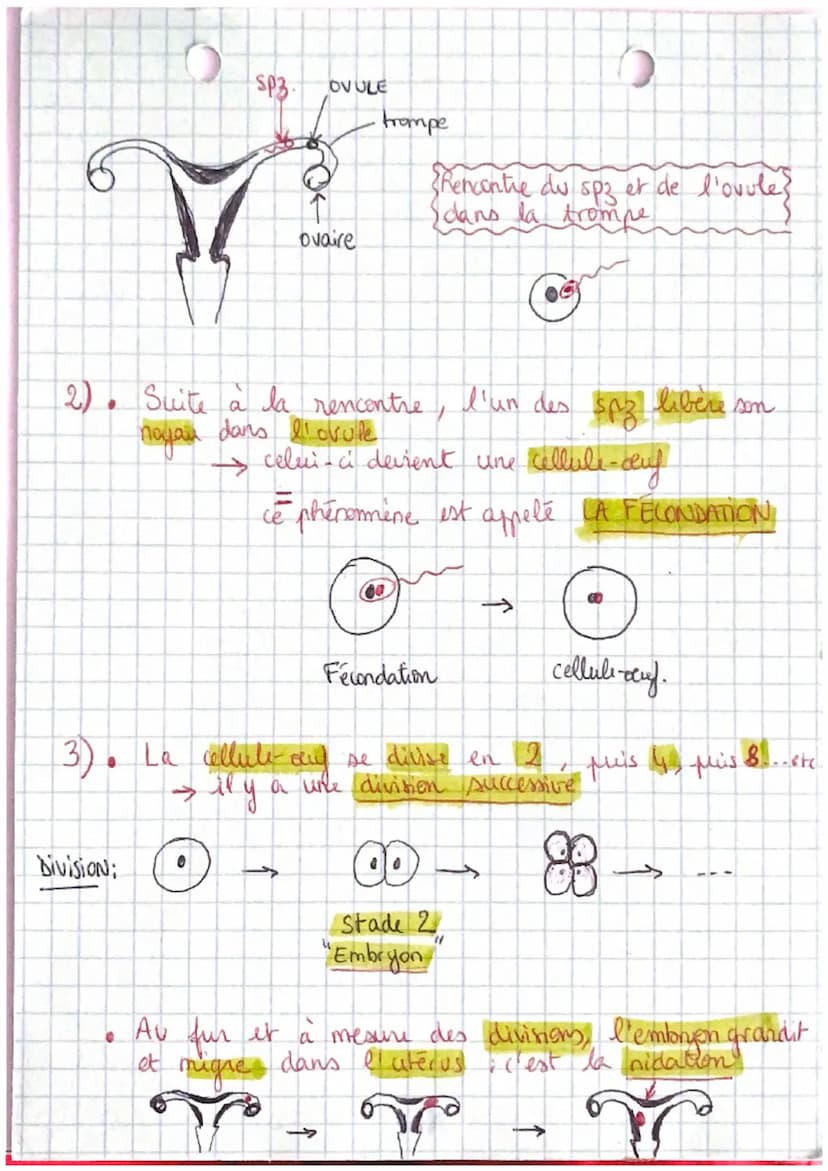 spz.
OVULE
trompe
Rencontre du spz et de l'ovule
dans la trompe
ovaire
2). Suite à la rencontre, l'un des spz libère son
noyau dans l'ovule
→ celui-ci devient une cellule-œuf
ce phénomène est appelé LA FÉCONDATION
→
Fécondation
cellule-œuf.
3). La cellule-œuf se divise en 2, puis 4, puis 8...etc
→ il y a une division successive
Division:
→ → → ---
Stade 2
"Embryon"
• Au fur et à mesure des divisions, l'embryon grandit
et migre dans l'utérus ; c'est la nidation
→ →